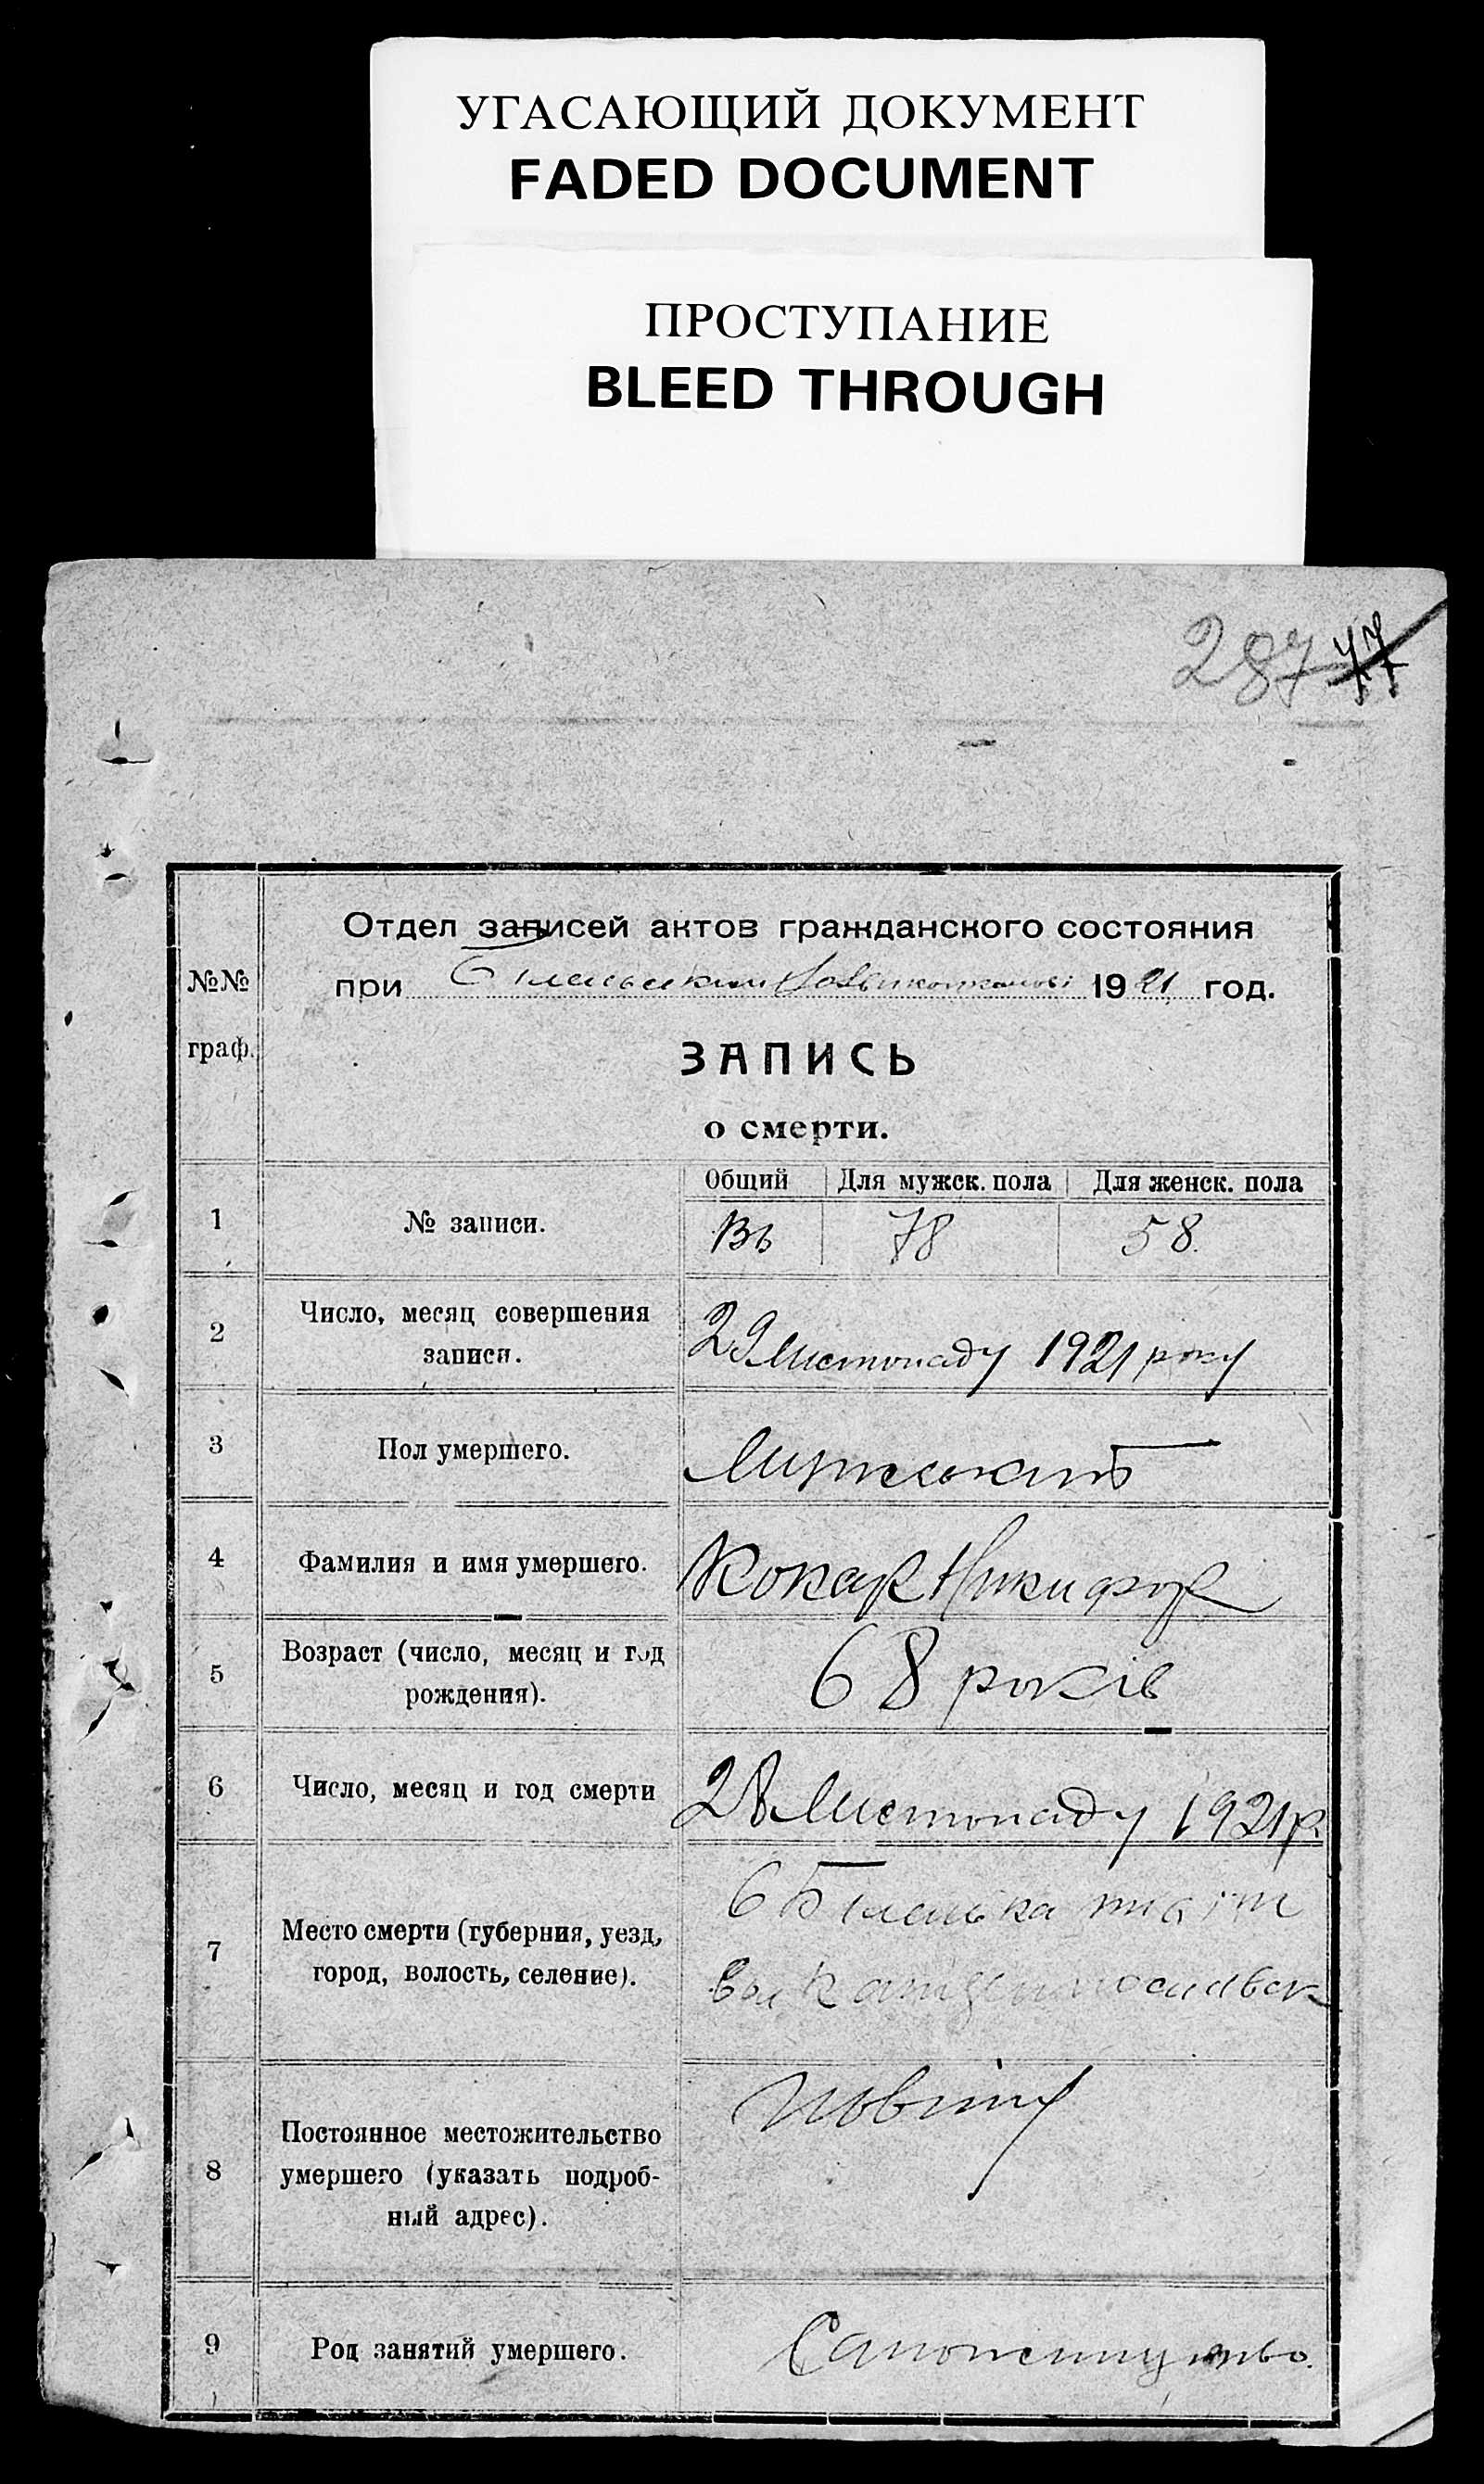 УГАСАЮЩИЙ ДОКУМЕНТ
FADED DOCUMENT
ПРОСТУПАНИЕ
BLEED THROUGH
287 77
№№
граф.
Отдел записей актов гражданского состояния
при 1921 год.
ЗАПИСЬ
о смерти.
Общий Для мужск. пола Для женск. пола
1 № записи. 78 58.
2 Число, месяц совершения
записи.
29 Листопаду 1921 року
3 Пол умершего.
4 Фамилия и имя умершего. Кокар Никифор
5 Возраст (число, месяц и год
рождения).
68 років
6 Число, месяц и год смерти 28 Листопаду 1921 р.
7 Место смерти (губерния, уезд,
город, волость, селение).
Біленька
8 Постоянное местожительство
умершего (указать подроб-
ный адрес).
9 Род занятий умершего.